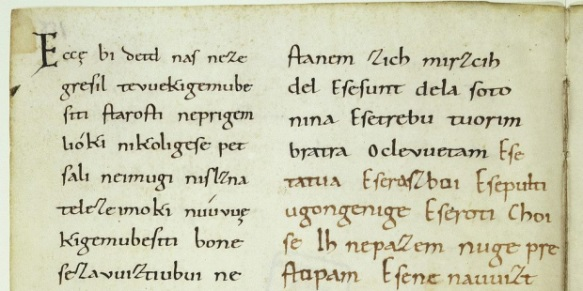 Eccę bi detd naſ neze
greſil tevuekigemube
ſiti ſtaroſti neprigem
lióki nikoligeſe pet
ſali neimugi niſlzna
teleze imoki nuúvuę
kigemubeſiti bone
ſezavuiztiubui ne
ſtanem zich mirzcih
del Eſeſunt dela ſoto
nina Eſetrebu tuorim
bratra Oclevuetam Eſe
tatua Eſeraſzboi Eſepulti
ugongenige Eſeroti Choi
se Ih nepazem nuge pre
ſtupam Eſene nauuizt